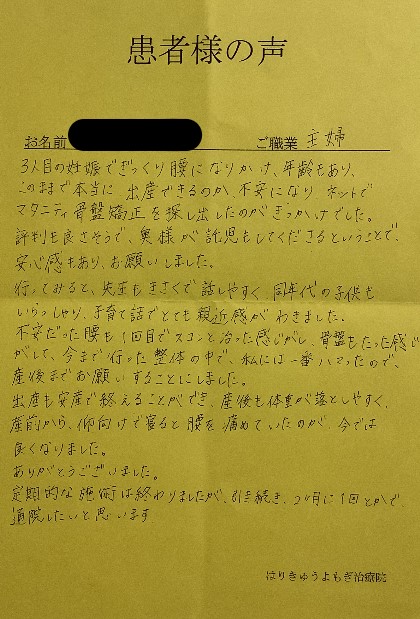 患者様の声
お名前 ご職業 主婦
3人目の妊娠でぎっくり腰になりかけ、年齢もあり、
このままで本当に出産できるのか、不安になりネットで
マタニティ骨盤矯正を探し出したのがきっかけでした。
評判も良さそうで、奥様が託児もしてくださるということで、
安心感もあり、お願いしました。
行ってみると、先生もきさくで話しやすく、同年代の子供も
いらっしゃり、子育て話でとても親近感がわきました。
不安だった腰も1回目でスコンと治った感じがし、骨盤もたった感じ
がして、今まで行った整体の中で、私には一番ハマったので、
産後までお願いすることにしました。
出産も安産で終えることができ、産後も体重が落としやすく、
産前から、仰向けで寝ると腰を痛めていたのが、今では
良くなりました。
ありがとうございました。
定期的な施術は終わりましたが、引き続き、2か月に1回とかで、
通院したいと思います
はりきゅうよもぎ治療院